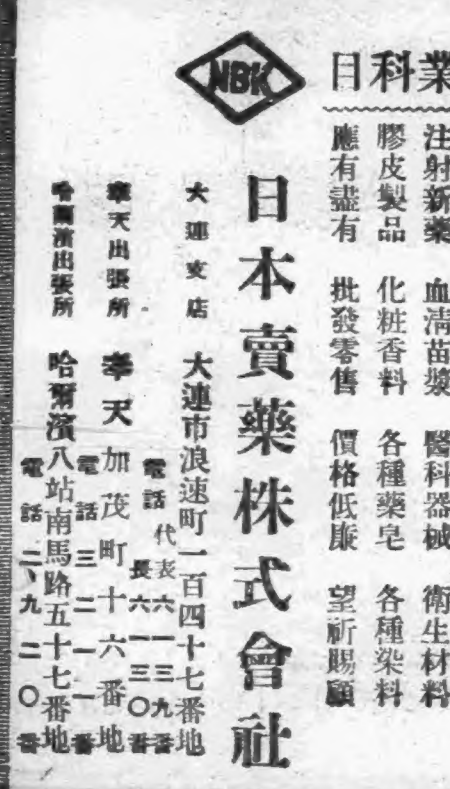 業
科
日
注射新藥 血淸苗漿 醫科器械 衛生材料
膠皮製品 化粧香料 各種藥皂 各種染料
應有盡有 批發零售 價格低廉 望祈賜顧
NBK
日本賣藥株式會社
大連支店 大連市浪速町一百四十七番地
電話 代表六一三九番
長六一三〇番
奉天出張所 奉天加茂町十六番地
電話三二一一番
哈爾濱出張所 哈爾濱八站南馬路五十七番地
電話二、九二〇番